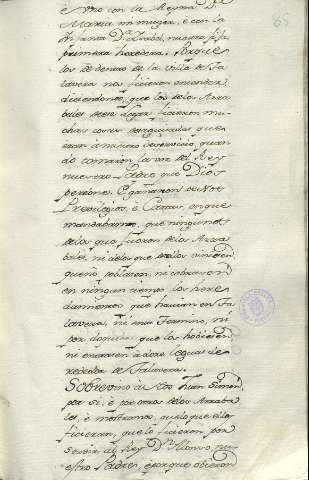 è uno con la Reyna D.ª
Maria mi muger, è con la
Infanta D.ª Isabel, nuestra fija
primera heredera. Porque
los de dentro de la Villa de Ta
lavera nos ficieron entender
diciendonos, que los de los Arra
bales deste Logar ficieron mu
chas cosas desaguisadas que
eran à nuestro deservicio, quan
do tomaron la voz del Rey
nuestro Padre que Dios
perdone. E ganaron de Nos
Previlegios, è Cartas, en que
mandabamos, que ningunos
de los que fueron de los Arra
bales, ni de los que con ellos vinieron
que no poblaron, ni cobrasen
en ningun tiempo los here
damientos que havian en Ta
lavera, ni en su Termino, ni
por do quier que los hobiesen
ni entrasen à doce leguas de
rrededor de Talavera.
Sobre esto de Don Juan Simon,
por si, è por otros de los Arraba
les, è mostramos, que lo que ellos
ficieran, que lo ficieron por
servir al Rey D.n Alonso, nu
estro Padre, è porque obieron